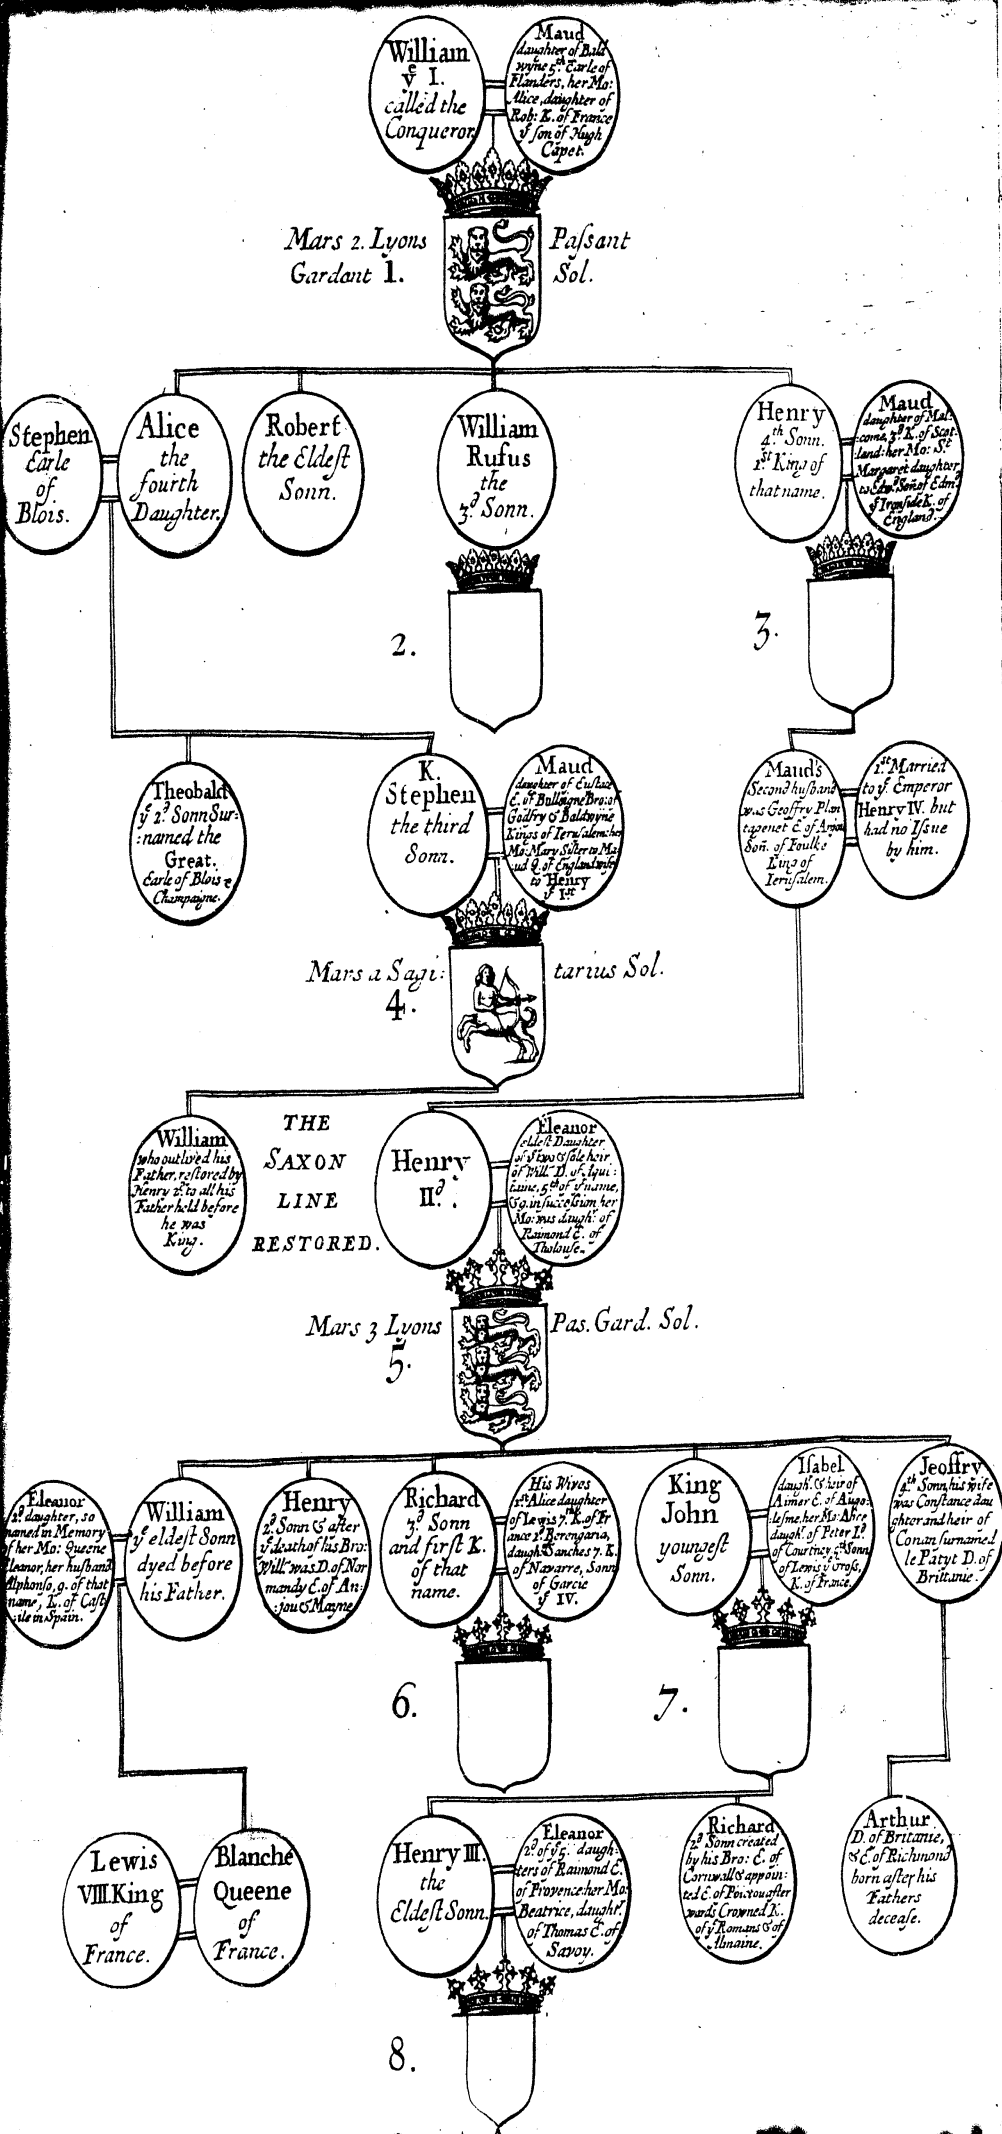 William
yͤ I.
called the
Conqueror.
Maud
daughter of Bald
wyne 5.th Earle of
Flanders, her Mo:
Alice, daughter of
Rob: K. of France
yͤ ſon of Hugh
Capet.
Mars 2. Lyons Paſsant
Gardant 1. Sol.
Stephen
Earle
of
Blois.
Alice
the
fourth
Daughter.
Robert
the Eldeſt
Sonn.
William
Rufus
the
3.d Sonn.
Henry
4.th Sonn.
1.st King of
that name.
Maud
daughter of Mal:
:come, 3.d K. of Scot:
:land: her Mo: S.t
Margaret daughter
to Edw.d Son of Edm.d
yͤ Ironſide K. of
England.
2.
3.
Theobald
yͤ 2.d Sonn Sur:
:named the
Great.
Earle of Blois &
Champaigne.
K.
Stephen
the third
Sonn.
Maud
daughter of Euſtace
E. of Bulloigne Bro: of
Godfry & Baldwyne
Kings of Ieruſalem: her
Mo: Mary Siſter to Ma:
:ud Q. of England wife
to Henry
yͤ I.st
Maud's
Second huſband
was Geoffry Plan
tagenet E. of Anjou
Son. of Foulke
King of
Ieruſalem.
1.st Married
to yͤ Emperor
Henry IV. but
had no Iſsue
by him.
Mars a Sagi: tarius Sol.
4.
William
who outlived his
Father, reſtored by
Henry 2.d to all his
Father held before
he was
King.
THE
SAXON
LINE
RESTORED.
Henry
II.d
Eleanor
eldeſt Daughter
of yͤ two & ſole heir
of Will.m D. of Aqui:
taine, 5.th of yͤ name,
& 9. in ſucceſsion, her
Mo: was daugh.r of
Raimond E. of
Tholouſe.
Mars 3 Lyons Pas. Gard. Sol.
5.
Eleanor
2.d daughter, so
named in Memory
of her Mo: Queene
Eleanor, her huſband
Alphonſo, 9. of that
name, K. of Caſt
:ile in Spain.
William
yͤ eldeſt Sonn
dyed before
his Father.
Henry
2.d Sonn & after
yͤ death of his Bro:
Will: was D. of Nor
mandy E. of An:
:jou & Mayne
Richard
3.d Sonn
and firſt K.
of that
name.
His Wives
1.st Alice daughter
of Lewis 7. K. of Fr
ance 2.d Berengaria,
daugh: Sanches 7. K.
of Navarre, Sonn
of Garcie
yͤ IV.
King
John
youngeſt
Sonn.
Iſabel
daugh.r & heir of
Aimer E. of Ango:
:leſme, her Mo: Alice
daugh.r of Peter L.d
of Courtney 5.th Sonn
of Lewis yͤ Groſs,
K. of France.
Jeoffry
4.th Sonn, his wife
was Conſtance dau
ghter and heir of
Conan ſurnamed
le Patyt D. of
Brittanie.
6.
7.
Lewis
VIII. King
of
France.
Blanche
Queene
of
France.
Henry III.
the
Eldeſt Sonn.
Eleanor
2.d of yͤ 5. daugh:
ters of Raimond E.
of Provence: her Mo:
Beatrice, daught.r
of Thomas E. of
Savoy.
Richard
2.d Sonn created
by his Bro: E. of
Cornwall & appoin:
ted E. of Poictou after
wards Crowned K.
of yͤ Romans & of
Almaine.
Arthur
D. of Britanie,
& E. of Richmond
born after his
Fathers
deceaſe.
8.